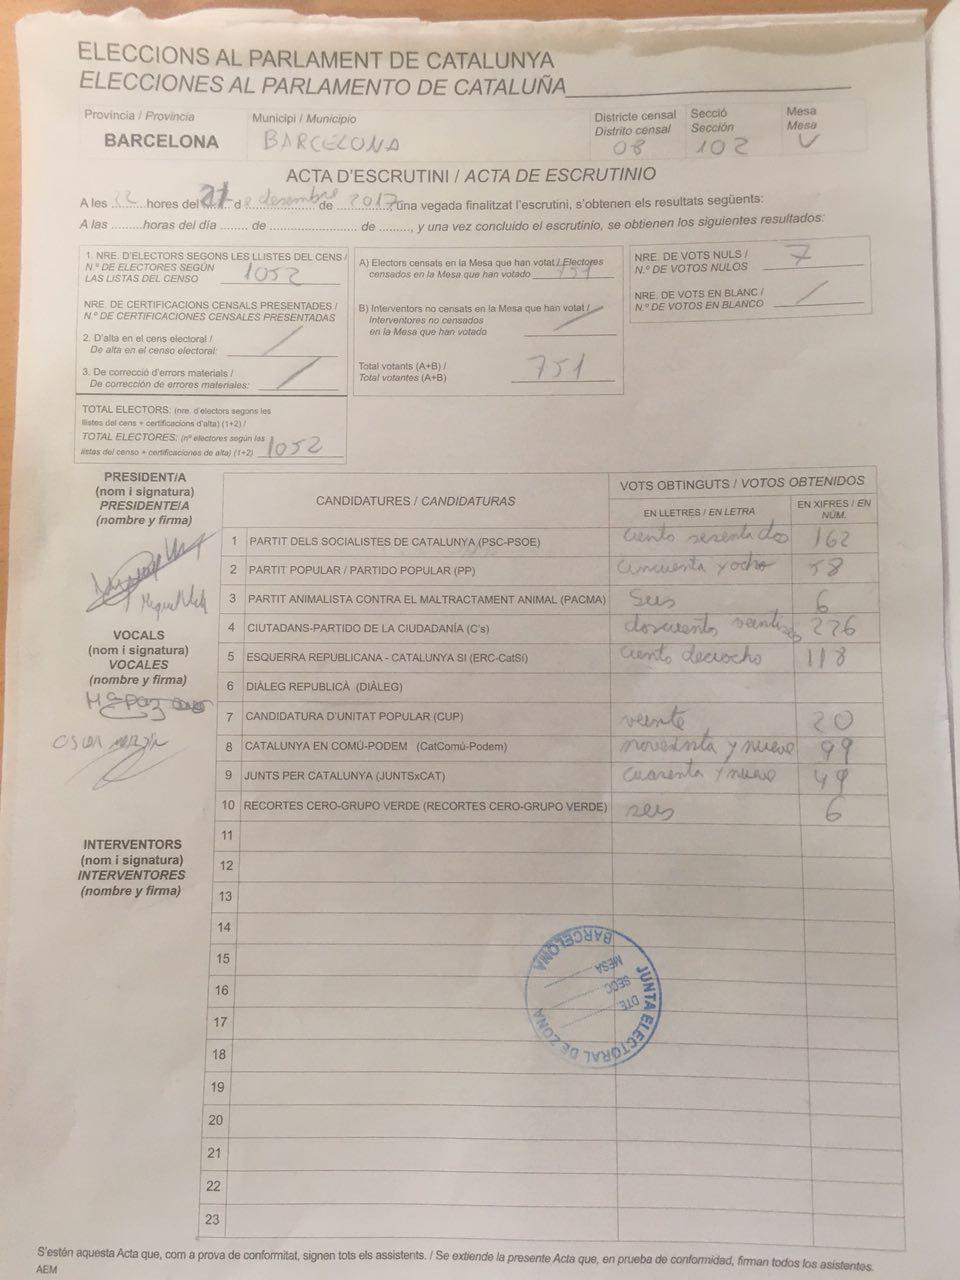 ELECCIONS AL PARLAMENT DE CATALUNYA
ELECCIONES AL PARLAMENTO DE CATALUÑA
Provincia / Provincia
BARCELONA
Municipi / Municipio
BARCELONA
Districte censal
Distrito censal
08
Secció
Sección
102
Mesa
Mesa
U
ACTA D'ESCRUTINI / ACTA DE ESCRUTINIO
A les 22 hores del 21 de desembre de 2017, una vegada finalitzat l'escrutini, s'obtenen els resultats següents:
A las ......... horas del día ........ de .................... de ........, y una vez concluido el escrutinio, se obtienen los siguientes resultados:
1. NRE. D'ELECTORS SEGONS LES LLISTES DEL CENS /
N.º DE ELECTORES SEGÚN
LAS LISTAS DEL CENSO 1052
NRE. DE CERTIFICACIONS CENSALS PRESENTADES /
N.º DE CERTIFICACIONES CENSALES PRESENTADAS
2. D'alta en el cens electoral /
De alta en el censo electoral:
3. De correcció d'errors materials /
De corrección de errores materiales:
TOTAL ELECTORS: (nre. d'electors segons les
llistes del cens + certificacions d'alta) (1+2) /
TOTAL ELECTORES: (nº electores según las
listas del censo + certificaciones de alta) (1+2) 1052
A) Electors censats en la Mesa que han votat / Electores
censados en la Mesa que han votado 751
B) Interventors no censats en la Mesa que han votat /
Interventores no censados
en la Mesa que han votado
Total votants (A+B) /
Total votantes (A+B) 751
NRE. DE VOTS NULS /
N.º DE VOTOS NULOS 7
NRE. DE VOTS EN BLANC /
N.º DE VOTOS EN BLANCO
PRESIDENT/A
(nom i signatura)
PRESIDENTE/A
(nombre y firma)
VOCALS
(nom i signatura)
VOCALES
(nombre y firma)
Mª Paz
OSCAR
INTERVENTORS
(nom i signatura)
INTERVENTORES
(nombre y firma)
CANDIDATURES / CANDIDATURAS
VOTS OBTINGUTS / VOTOS OBTENIDOS
EN LLETRES / EN LETRA
EN XIFRES / EN
NÚM.
1 PARTIT DELS SOCIALISTES DE CATALUNYA (PSC-PSOE) ciento sesenta dos 162
2 PARTIT POPULAR / PARTIDO POPULAR (PP) cincuenta y ocho 58
3 PARTIT ANIMALISTA CONTRA EL MALTRACTAMENT ANIMAL (PACMA) Seis 6
4 CIUTADANS-PARTIDO DE LA CIUDADANÍA (C's) doscientos 226
5 ESQUERRA REPUBLICANA - CATALUNYA SI (ERC-CatSí) ciento deciocho 118
6 DIÀLEG REPUBLICÀ (DIÀLEG)
7 CANDIDATURA D'UNITAT POPULAR (CUP) veinte 20
8 CATALUNYA EN COMÚ-PODEM (CatComú-Podem) noventa y nueve 99
9 JUNTS PER CATALUNYA (JUNTSxCAT) cuarenta y nueve 49
10 RECORTES CERO-GRUPO VERDE (RECORTES CERO-GRUPO VERDE) seis 6
11
12
13
14
15
16
17
18
19
20
21
22
23
JUNTA ELECTORAL DE ZONA
BARCELONA
DTE.
SECC.
MESA
S'estén aquesta Acta que, com a prova de conformitat, signen tots els assistents. / Se extiende la presente Acta que, en prueba de conformidad, firman todos los asistentes.
AEM